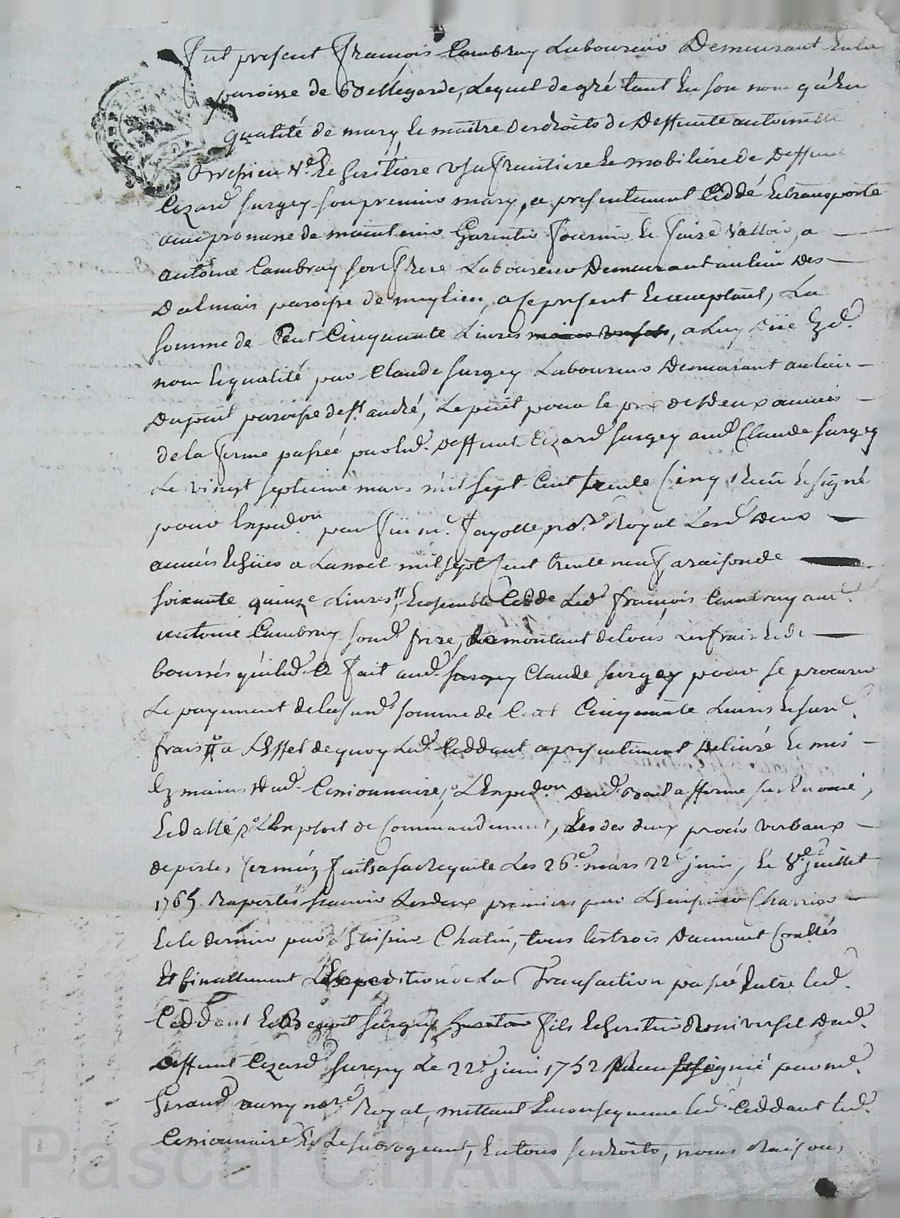 Fut present François Cambray Laboureur Demeurant En la
paroisse de Bellegarde, Lequel de gré tant En son nom qu'En
qualité de mary Le maitre des droits de Deffunte antoinette
Ve. Et heritiere Usufruitiere Et mobiliere de Deffunt
Cezard Surgey son premier mary, a presentement Ceddé Et transporté
avec promesse de maintenir Garentir fournir Et faire Valloir, a
antoine Cambray son frere Laboureur Demeurant au lieu Des
Dalmais paroisse de meylieu, a ce present Et acceptant, La
somme de Cent Cinquante Livres a Luy düe Ezd.
nom Et qualité par Claude Surgey Laboureur Demeurant au lieu
Dupuit paroisse de St. andré, Le petit pour le prix de Deux années
de la ferme passée par led. Deffunt Cezard Surgey aud. Claude Surgey
Le vingt septieme mars mil sept Cent trente Cinq Receu Et signé
pour Expedon. par Jayolle nore. Royal Lesd. Deux
années Echües a La noel mil sept Cent trente neuf a raison de
soixante quinze Livres, Ensemble Cedde Led. françois Cambray aud.
Antoine Cambray sond. frere, Le montant de tous Les frais Et de
boursés qu'il a fait aud. Claude Surgey pour se procurer
Le payement de la susd. somme de Cent Cinquante Livres Et sur
frais a L'Effet de quoy Led. Ceddant a presentement Delivré Et mis
Ez mains dud. Cessionnaire, 1o L'Expedon. Dud. Bail a fferme sus Enoncé,
Et datté, 2o L'Exploit de Commandement, Les deux procès verbaux
de pistes faits a sa Requete Les 26e. mars 22e juin, Et 8e. juillet
1765 Les deux premiers par L'huissier Charrier
Et le dernier par L'huissier Chatin, tous Les trois Duement Conllés
Et finallement L'Expedition de La Transaction passée Entre led.
Ceddant Et Benoit Surgey fils Et heritier Universel Dud.
Deffunt Cezard Surgey Le 22e. juin 1752 par me.
Giraud nore. Royal, mettant En consequence led. Ceddant led.
Cessionnaire Et Le subrogeant, En tous ses droits, noms Raisons
Pascal CHAREYRON